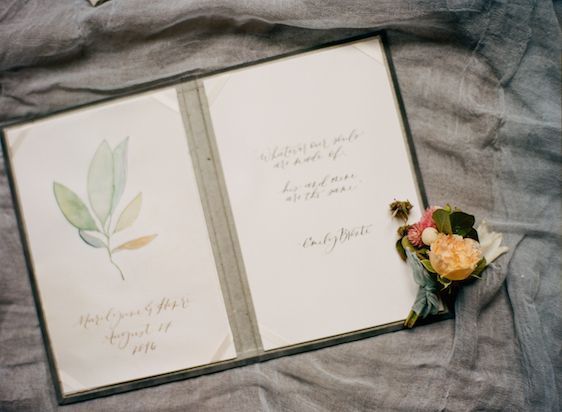 August 14
Whatever our souls
are made of,
his and mine
are the same.
-Emily Brontë